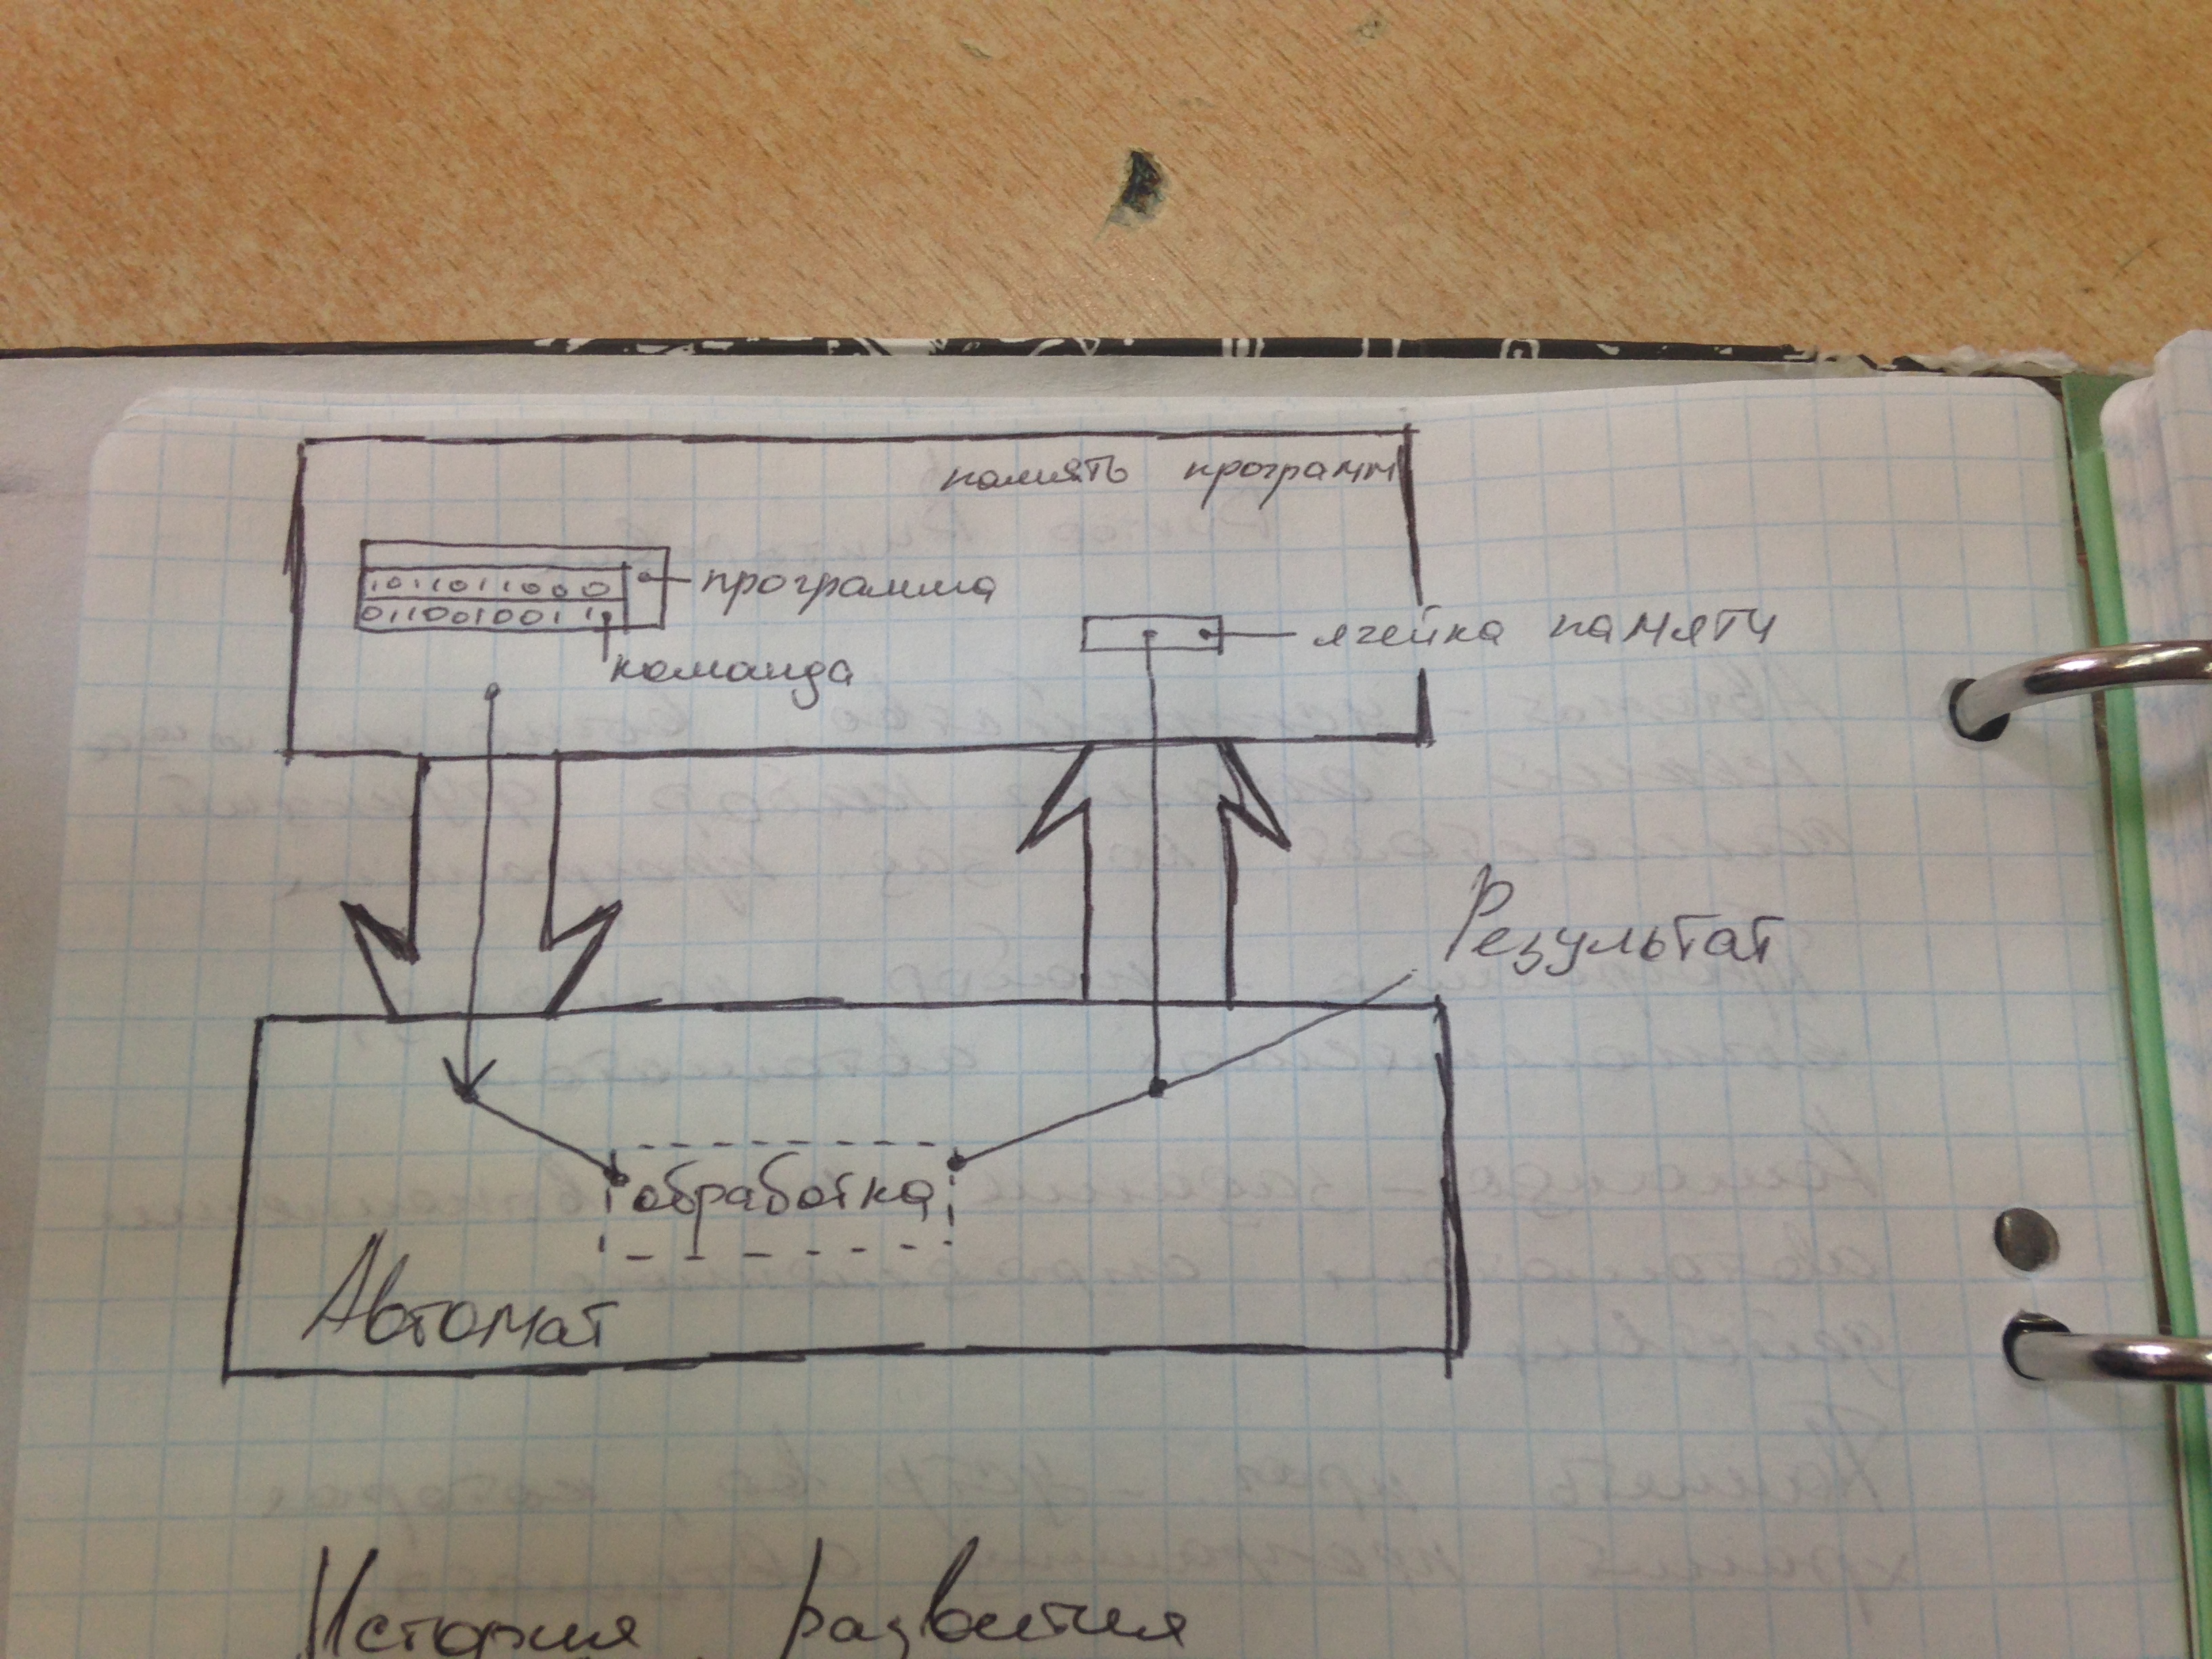 память программ
1011011000
программа
0110010011
команда
ячейка памяти
Результат
обработка
Автомат
История развития